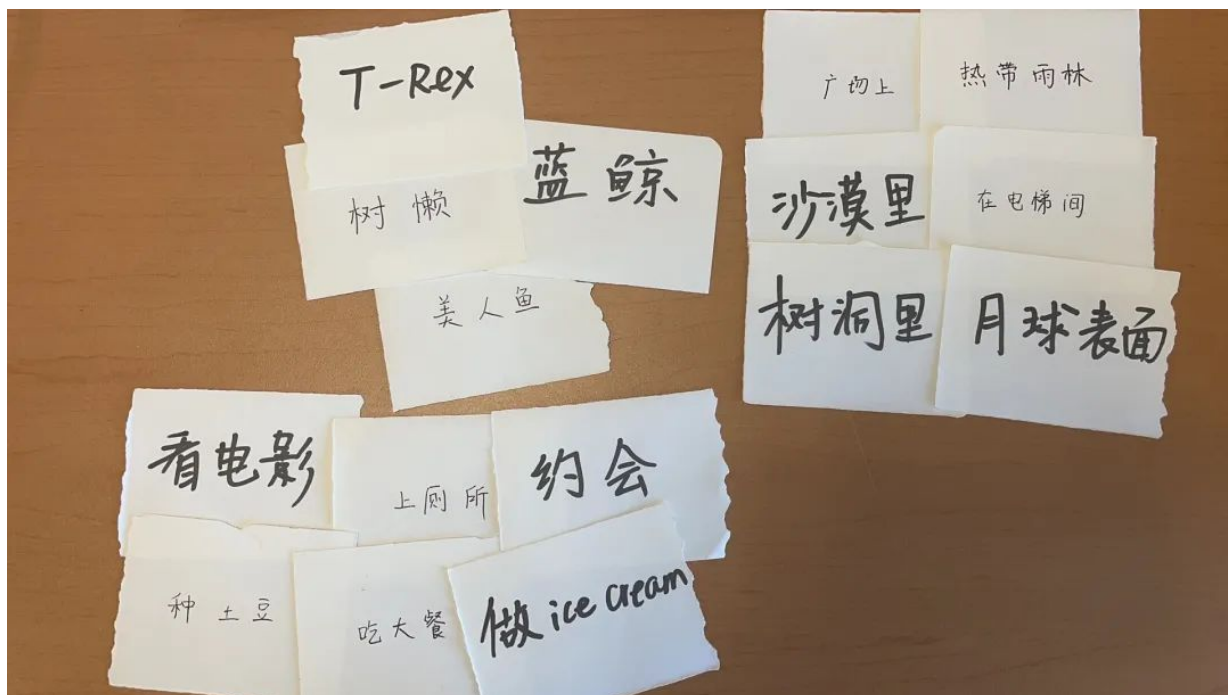 T-Rex
树懒
蓝鲸
美人鱼
广场上
热带雨林
沙漠里
在电梯间
树洞里
月球表面
看电影
上厕所
约会
种土豆
吃大餐
做ice cream